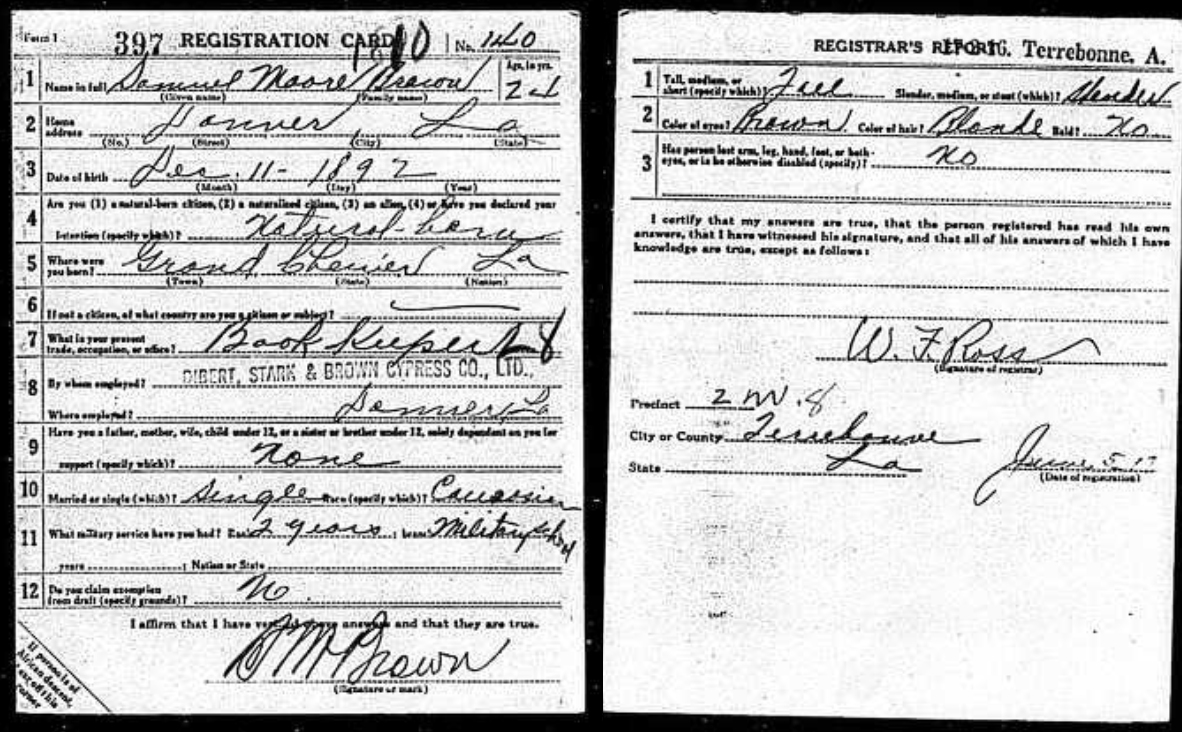 Form 1 397 REGISTRATION CARD No. 140
1 Name in full Samuel Moore Brown Age, in yrs. 24
(Given name) (Family name)
2 Home address Donner, La
(No.) (Street) (City) (State)
3 Date of birth Dec. 11 - 1892
(Month) (Day) (Year)
4 Are you (1) a natural-born citizen, (2) a naturalized citizen, (3) an alien, (4) or have you declared your
intention (specify which)? Natural-born
5 Where were you born? Grand Chenier La
(Town) (State) (Nation)
6 If not a citizen, of what country are you a citizen or subject?
7 What is your present trade, occupation, or office? Book Keeper 28
8 By whom employed? DIBERT, STARK & BROWN CYPRESS CO., LTD.,
Where employed? Donner La
9 Have you a father, mother, wife, child under 12, or a sister or brother under 12, solely dependent on you for
support (specify which)? None
10 Married or single (which)? Single Race (specify which)? Caucasian
11 What military service have you had? Rank 2 years ; branch Military School
years ; Nation or State
12 Do you claim exemption from draft (specify grounds)? No
I affirm that I have verified above answers and that they are true.
S M Brown
(Signature or mark)
If person is of
African descent,
cut off this
corner
REGISTRAR'S REPORT Terrebonne, A.
1 Tall, medium, or short (specify which)? Tall Slender, medium, or stout (which)? Slender
2 Color of eyes? Brown Color of hair? Blonde Bald? No
3 Has person lost arm, leg, hand, foot, or both eyes, or is he otherwise disabled (specify)? No
I certify that my answers are true, that the person registered has read his own
answers, that I have witnessed his signature, and that all of his answers of which I have
knowledge are true, except as follows:
W. F. Ross
(Signature of registrar)
Precinct 2 W. 8
City or County Terrebonne
State La
June 5 17
(Date of registration)